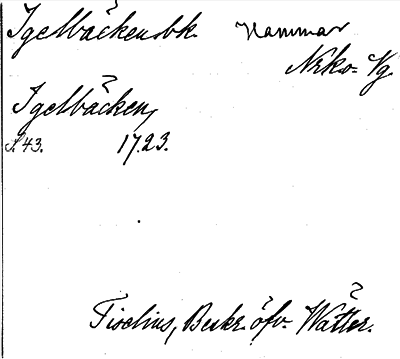 Igelbäcken bk. Hammar
Nrke- Vg.
Igelbäcken,
s. 43. 1723.
Tiselius, Beskr. öfv. Wätter.